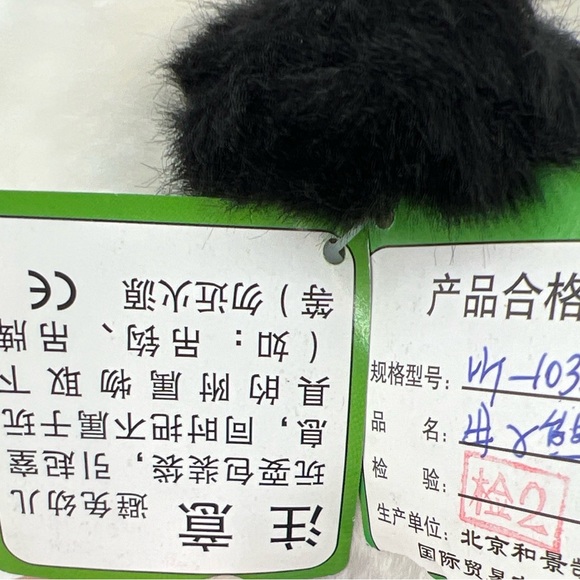 注意 避免幼儿
玩耍包装袋，引起窒
息，同时把不属于玩
具的附属物取下
（如：吊钩、吊牌
等）勿近火源 CE
产品合格
规格型号：
品 名：
检 验：检2
生产单位：北京和景
国际贸易